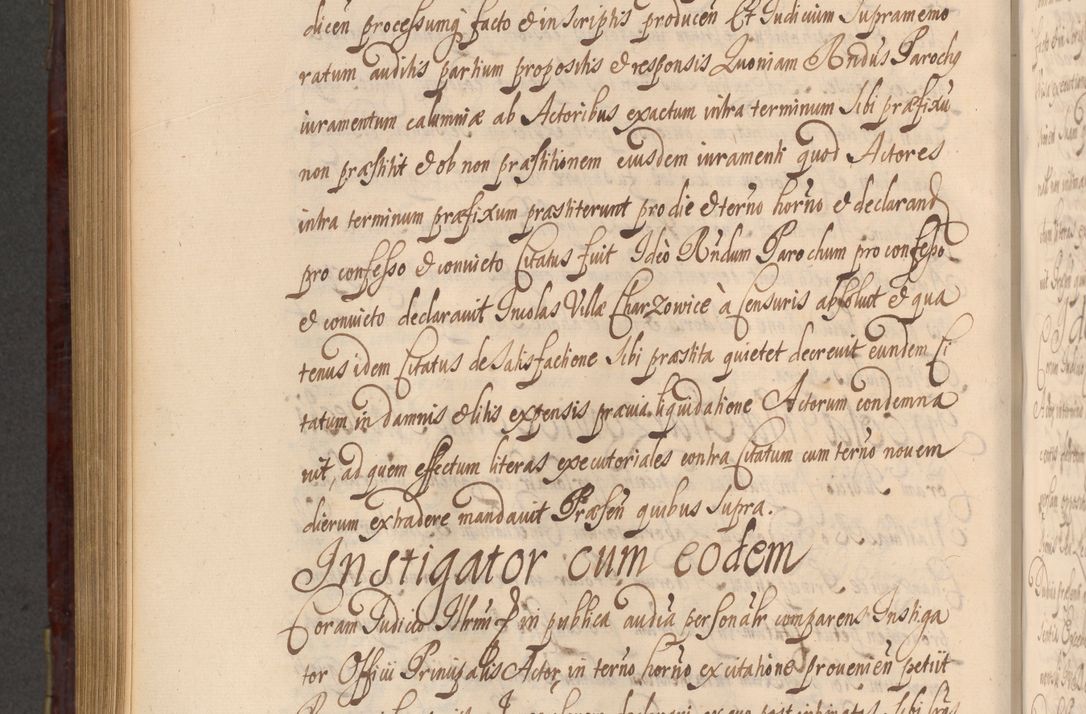 dicen processumq facto et in scriptis producen Et Judicium Supramemo
ratum auditis partium propositis et responsis Quoniam Rndus Parochy
iuramentum calumniæ ab Actoribus exactum intra terminum sibi præfixu
non præstitit et ob non præstitionem eiusdem iuramenti quod Actores
intra terminum præfixum præstiterunt pro die et terno horno et declarand
pro confesso et convicto Citatus fuit Ideò Rndum Parochum pro confesso
et convicto declaravit Incolas Villæ Charzowice à Censuris absolvit et qua
tenus idem Citatus de satisfactione sibi præstita quietet decrevit eundem Ci
tatum in damnis et litis expensis prævia liquidatione Actorum condemna
vit, ad quem effectum literas executoriales contra Citatum cum terno novem
dierum extradere mandavit Præsen quibus supra.
Instigator cum eodem
Coram Judicio Illrmi et in publica audia personalr comparens Instiga
tor Officii Principalis Actor in terno horno ex citatione provenien petiit